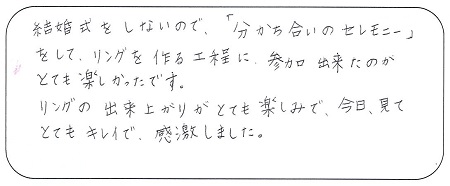 結婚式をしないので、「分かち合いのセレモニー」
をして、リングを作る工程に、参加出来たのが
とても楽しかったです。
リングの出来上がりがとても楽しみで、今日、見て
とてもキレイで、感激しました。